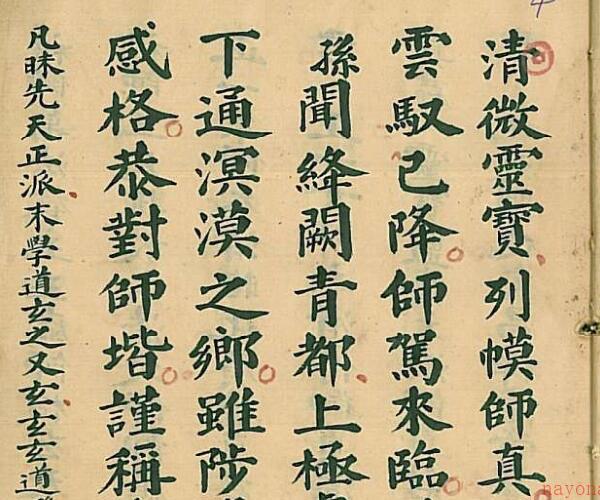 清微靈寶列幙師真
雲馭已降師駕來臨
孫聞絳闕青都上極
下通溟漠之鄉雖陟
感格恭對師堦謹稱
凡昧先天正派末學道玄之又玄玄玄道
nayona